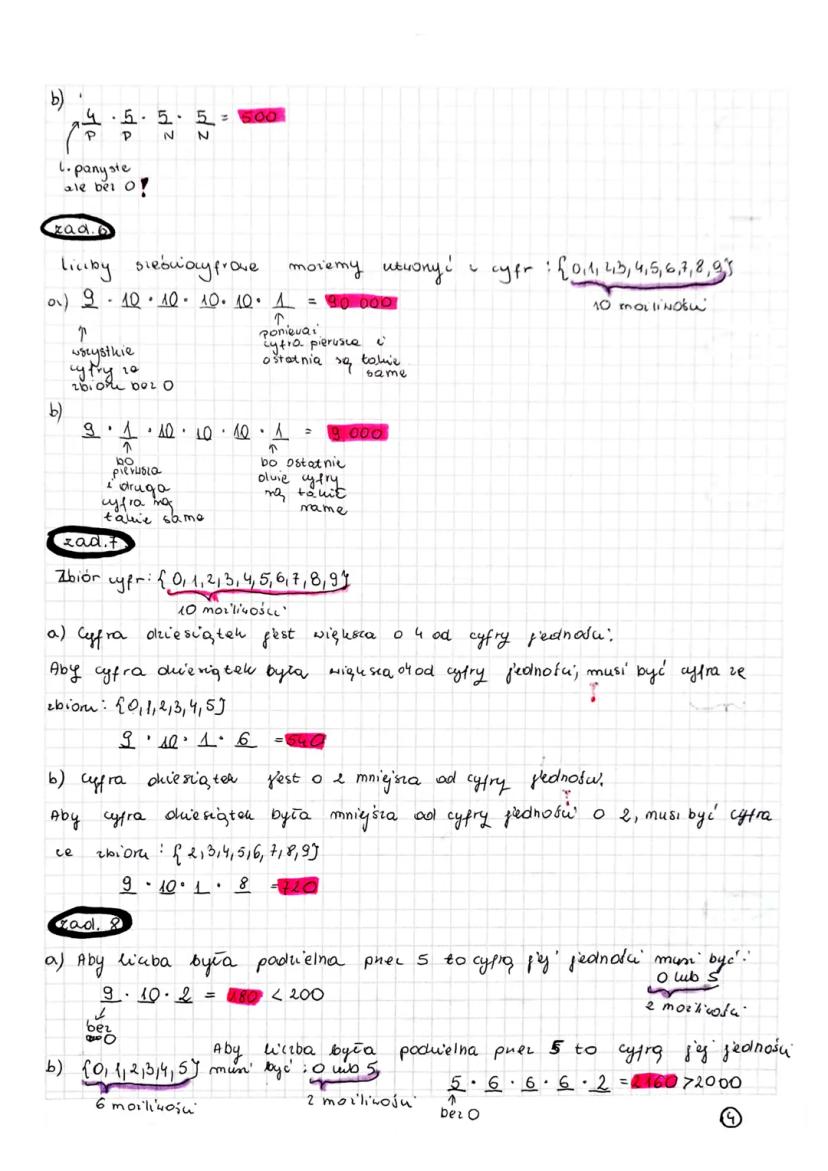 b)
4 · 5 · 5 · 5 = 500
P P N N
l. parzyste
ale bez 0!
zad. 6
Liczby sześciocyfrowe możemy utworzyć z cyfr : {0,1,2,3,4,5,6,7,8,9}
10 możliwości
a) 9 · 10 · 10 · 10 · 10 · 1 = 90 000
wszystkie
cyfry ze
zbioru bez 0
ponieważ
cyfra pierwsza i
ostatnia są takie
same
b)
9 · 1 · 10 · 10 · 10 · 1 = 9 000
bo
pierwsza
i druga
cyfra są
takie same
bo ostatnie
dwie cyfry
są takie
same
zad. 7
Zbiór cyfr: {0,1,2,3,4,5,6,7,8,9}
10 możliwości
a) Cyfra dziesiątek jest większa o 4 od cyfry jedności.
Aby cyfra dziesiątek była większa o 4 od cyfry jedności, musi być cyfra ze
zbioru: {0,1,2,3,4,5}
9 · 10 · 1 · 6 = 540
b) cyfra dziesiątek jest o 2 mniejsza od cyfry jedności.
Aby cyfra dziesiątek była mniejsza od cyfry jedności o 2, musi być cyfra
ze zbioru : {2,3,4,5,6,7,8,9}
9 · 10 · 1 · 8 = 720
zad. 8
a) Aby liczba była podzielna przez 5 to cyfrą jej jedności musi być:
0 lub 5
2 możliwości
9 · 10 · 2 = 180 < 200
bez
0
b) {0,1,2,3,4,5} Aby liczba była podzielna przez 5 to cyfrą jej jedności
musi być : 0 lub 5
6 możliwości
2 możliwości
5 · 6 · 6 · 6 · 2 = 2160 > 2000
bez 0
4